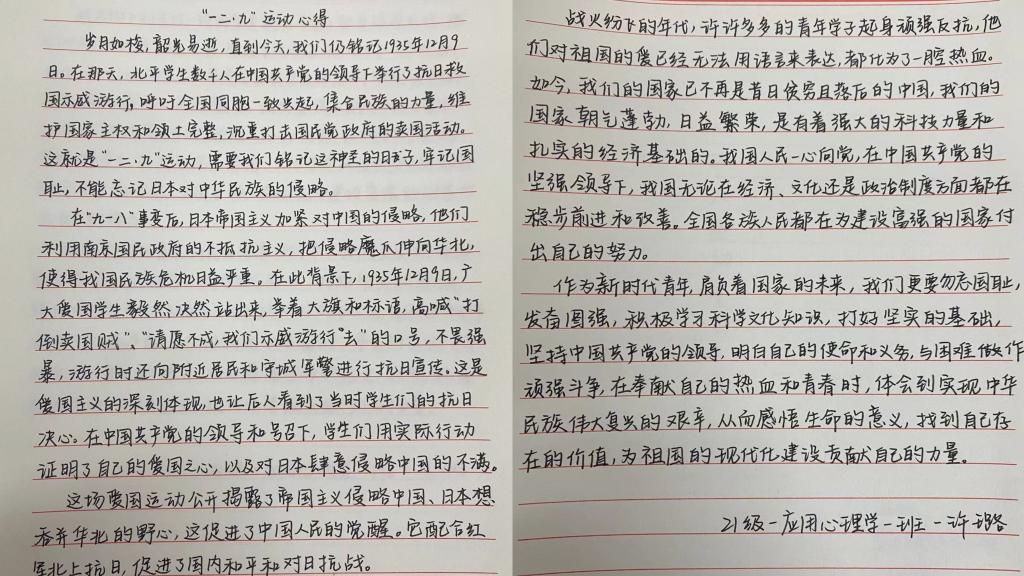 “一二·九”运动心得
岁月如梭，韶光易逝，直到今天，我们仍铭记1935年12月9
日。在那天，北平学生数千人在中国共产党的领导下举行了抗日救
国示威游行，呼吁全国同胞一致兴起，集合民族的力量，维
护国家主权和领土完整，沉重打击国民党政府的卖国活动。
这就是“一二·九”运动，需要我们铭记这神圣的日子，牢记国
耻，不能忘记日本对中华民族的侵略。
在“九一八”事变后，日本帝国主义加紧对中国的侵略，他们
利用南京国民政府的不抵抗主义，把侵略魔爪伸向华北，
使得我国民族危机日益严重。在此背景下，1935年12月9日，广
大爱国学生毅然决然站出来，举着大旗和标语，高喊“打
倒卖国贼”、“请愿不成，我们示威游行去”的口号，不畏强
暴，游行时还向附近居民和守城军警进行抗日宣传。这是
爱国主义的深刻体现，也让后人看到了当时学生们的抗日
决心。在中国共产党的领导和号召下，学生们用实际行动
证明了自己的爱国之心，以及对日本肆意侵略中国的不满。
这场爱国运动公开揭露了帝国主义侵略中国、日本想
吞并华北的野心，这促进了中国人民的觉醒。它配合红
军北上抗日，促进了国内和平和对日抗战。
战火纷飞的年代，许许多多的青年学子起身顽强反抗，他
们对祖国的爱已经无法用语言来表达，都化为了一腔热血。
如今，我们的国家已不再是昔日贫穷且落后的中国，我们的
国家朝气蓬勃，日益繁荣，是有着强大的科技力量和
扎实的经济基础的。我国人民一心向党，在中国共产党的
坚强领导下，我国无论在经济、文化还是政治制度方面都在
稳步前进和改善。全国各族人民都在为建设富强的国家付
出自己的努力。
作为新时代青年，肩负着国家的未来，我们更要勿忘国耻，
发奋图强，积极学习科学文化知识，打好坚实的基础，
坚持中国共产党的领导，明白自己的使命和义务，与困难做作
顽强斗争，在奉献自己的热血和青春时，体会到实现中华
民族伟大复兴的艰辛，从而感悟生命的意义，找到自己存
在的价值，为祖国的现代化建设贡献自己的力量。
21级－应用心理学一班－许璐